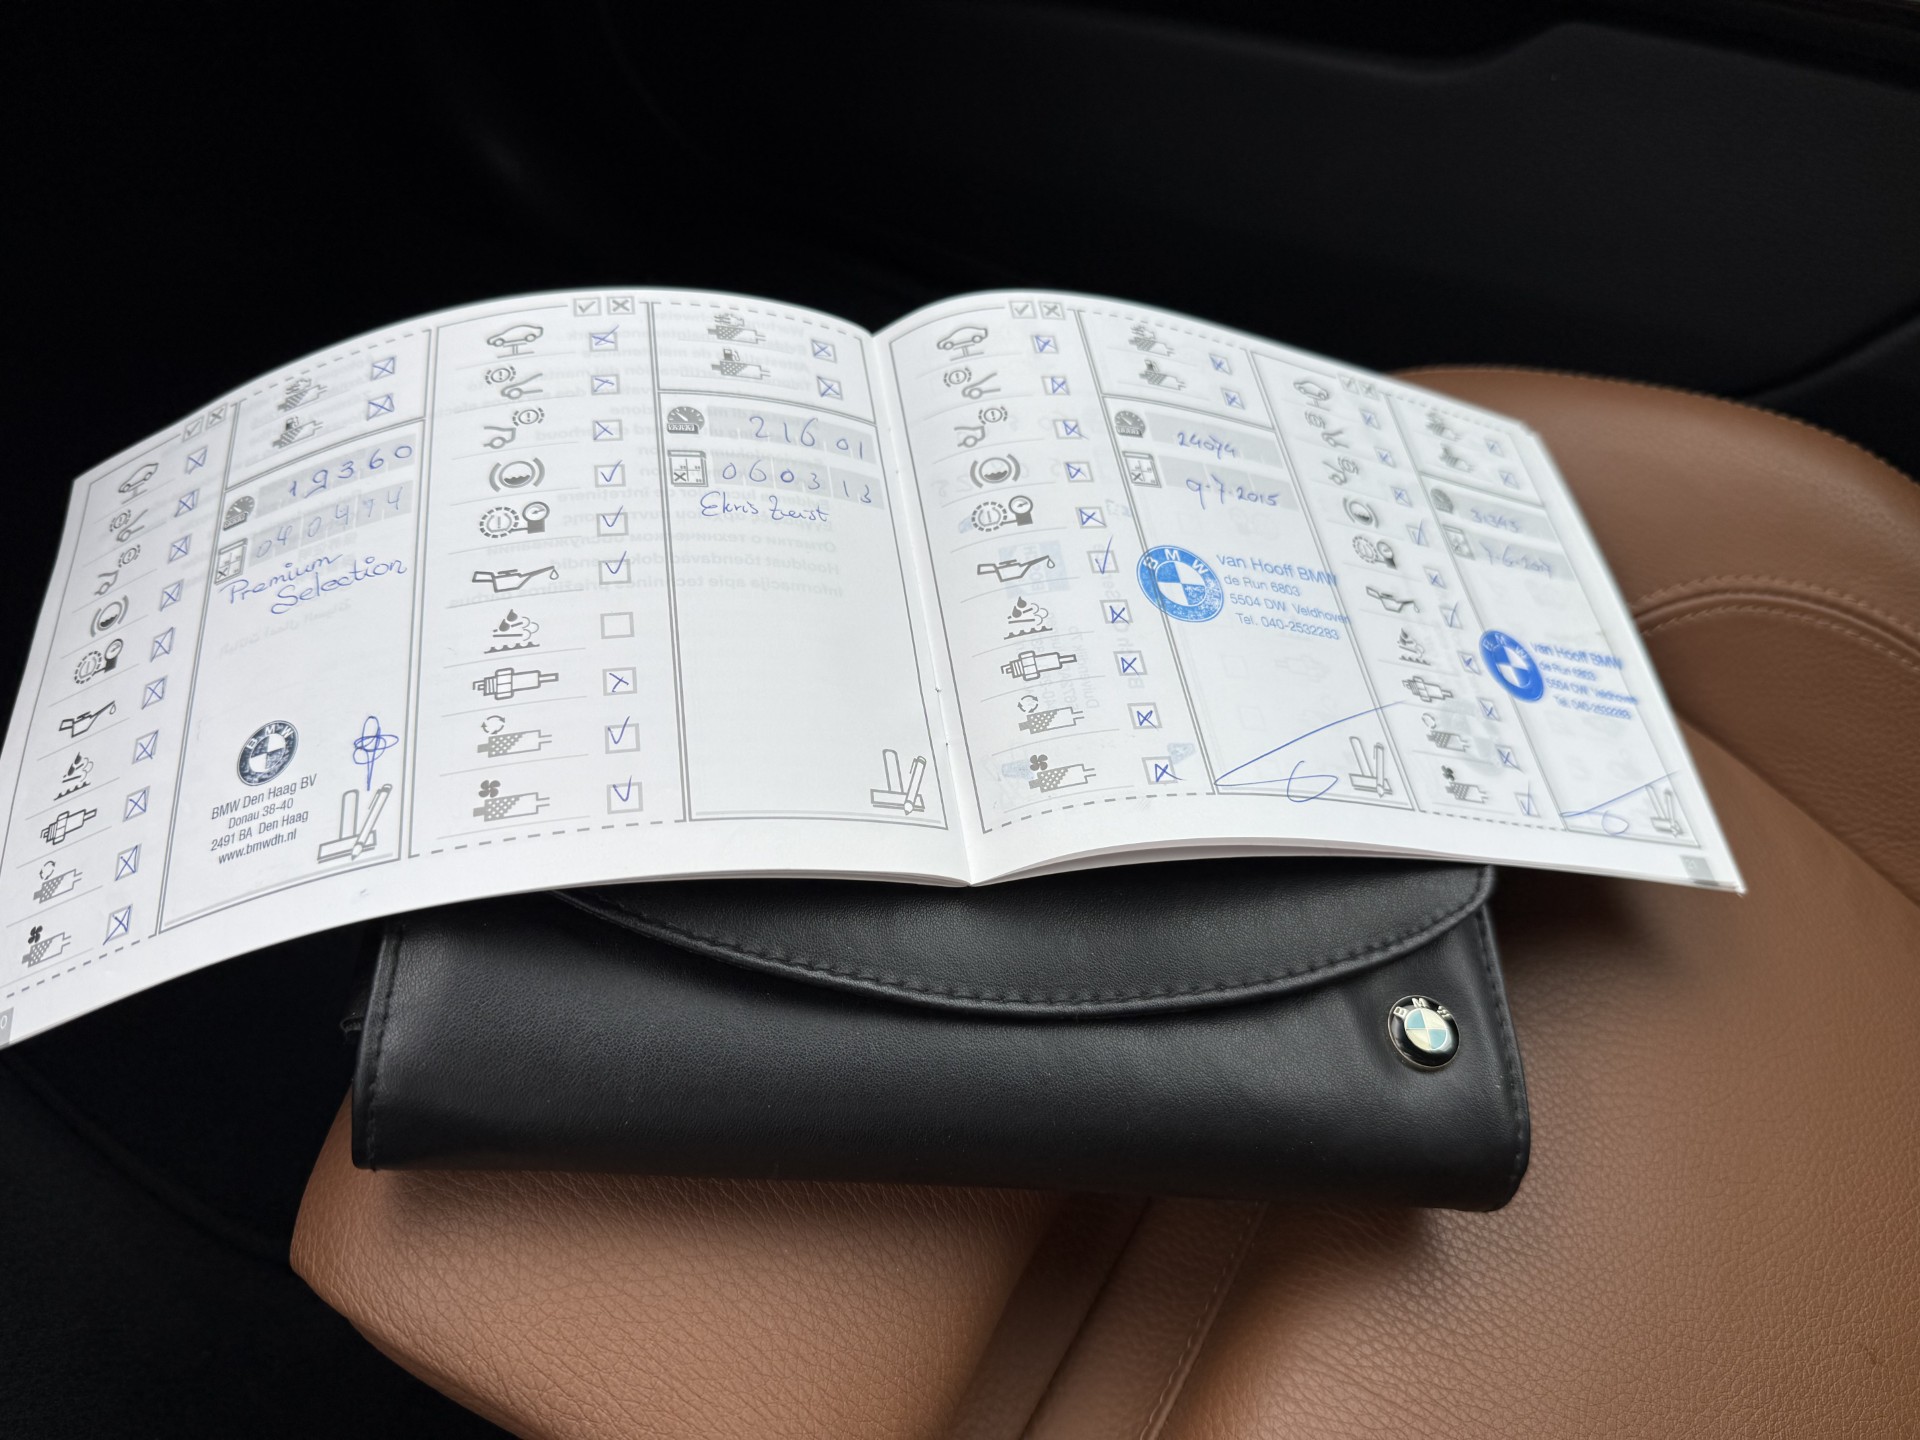 19360
Premium
Selection
BMW
BMW Den Haag BV
Donau 38-40
2491 BA Den Haag
www.bmwdh.nl
21601
060313
Ekris Zeist
24074
9.7.2015
BMW
van Hooff BMW
de Run 6803
5504 DW Veldhoven
Tel. 040-2532283
31345
BMW
van Hooff BMW
de Run 6803
5504 DW Veldhoven
Tel. 040-2532283
BMW